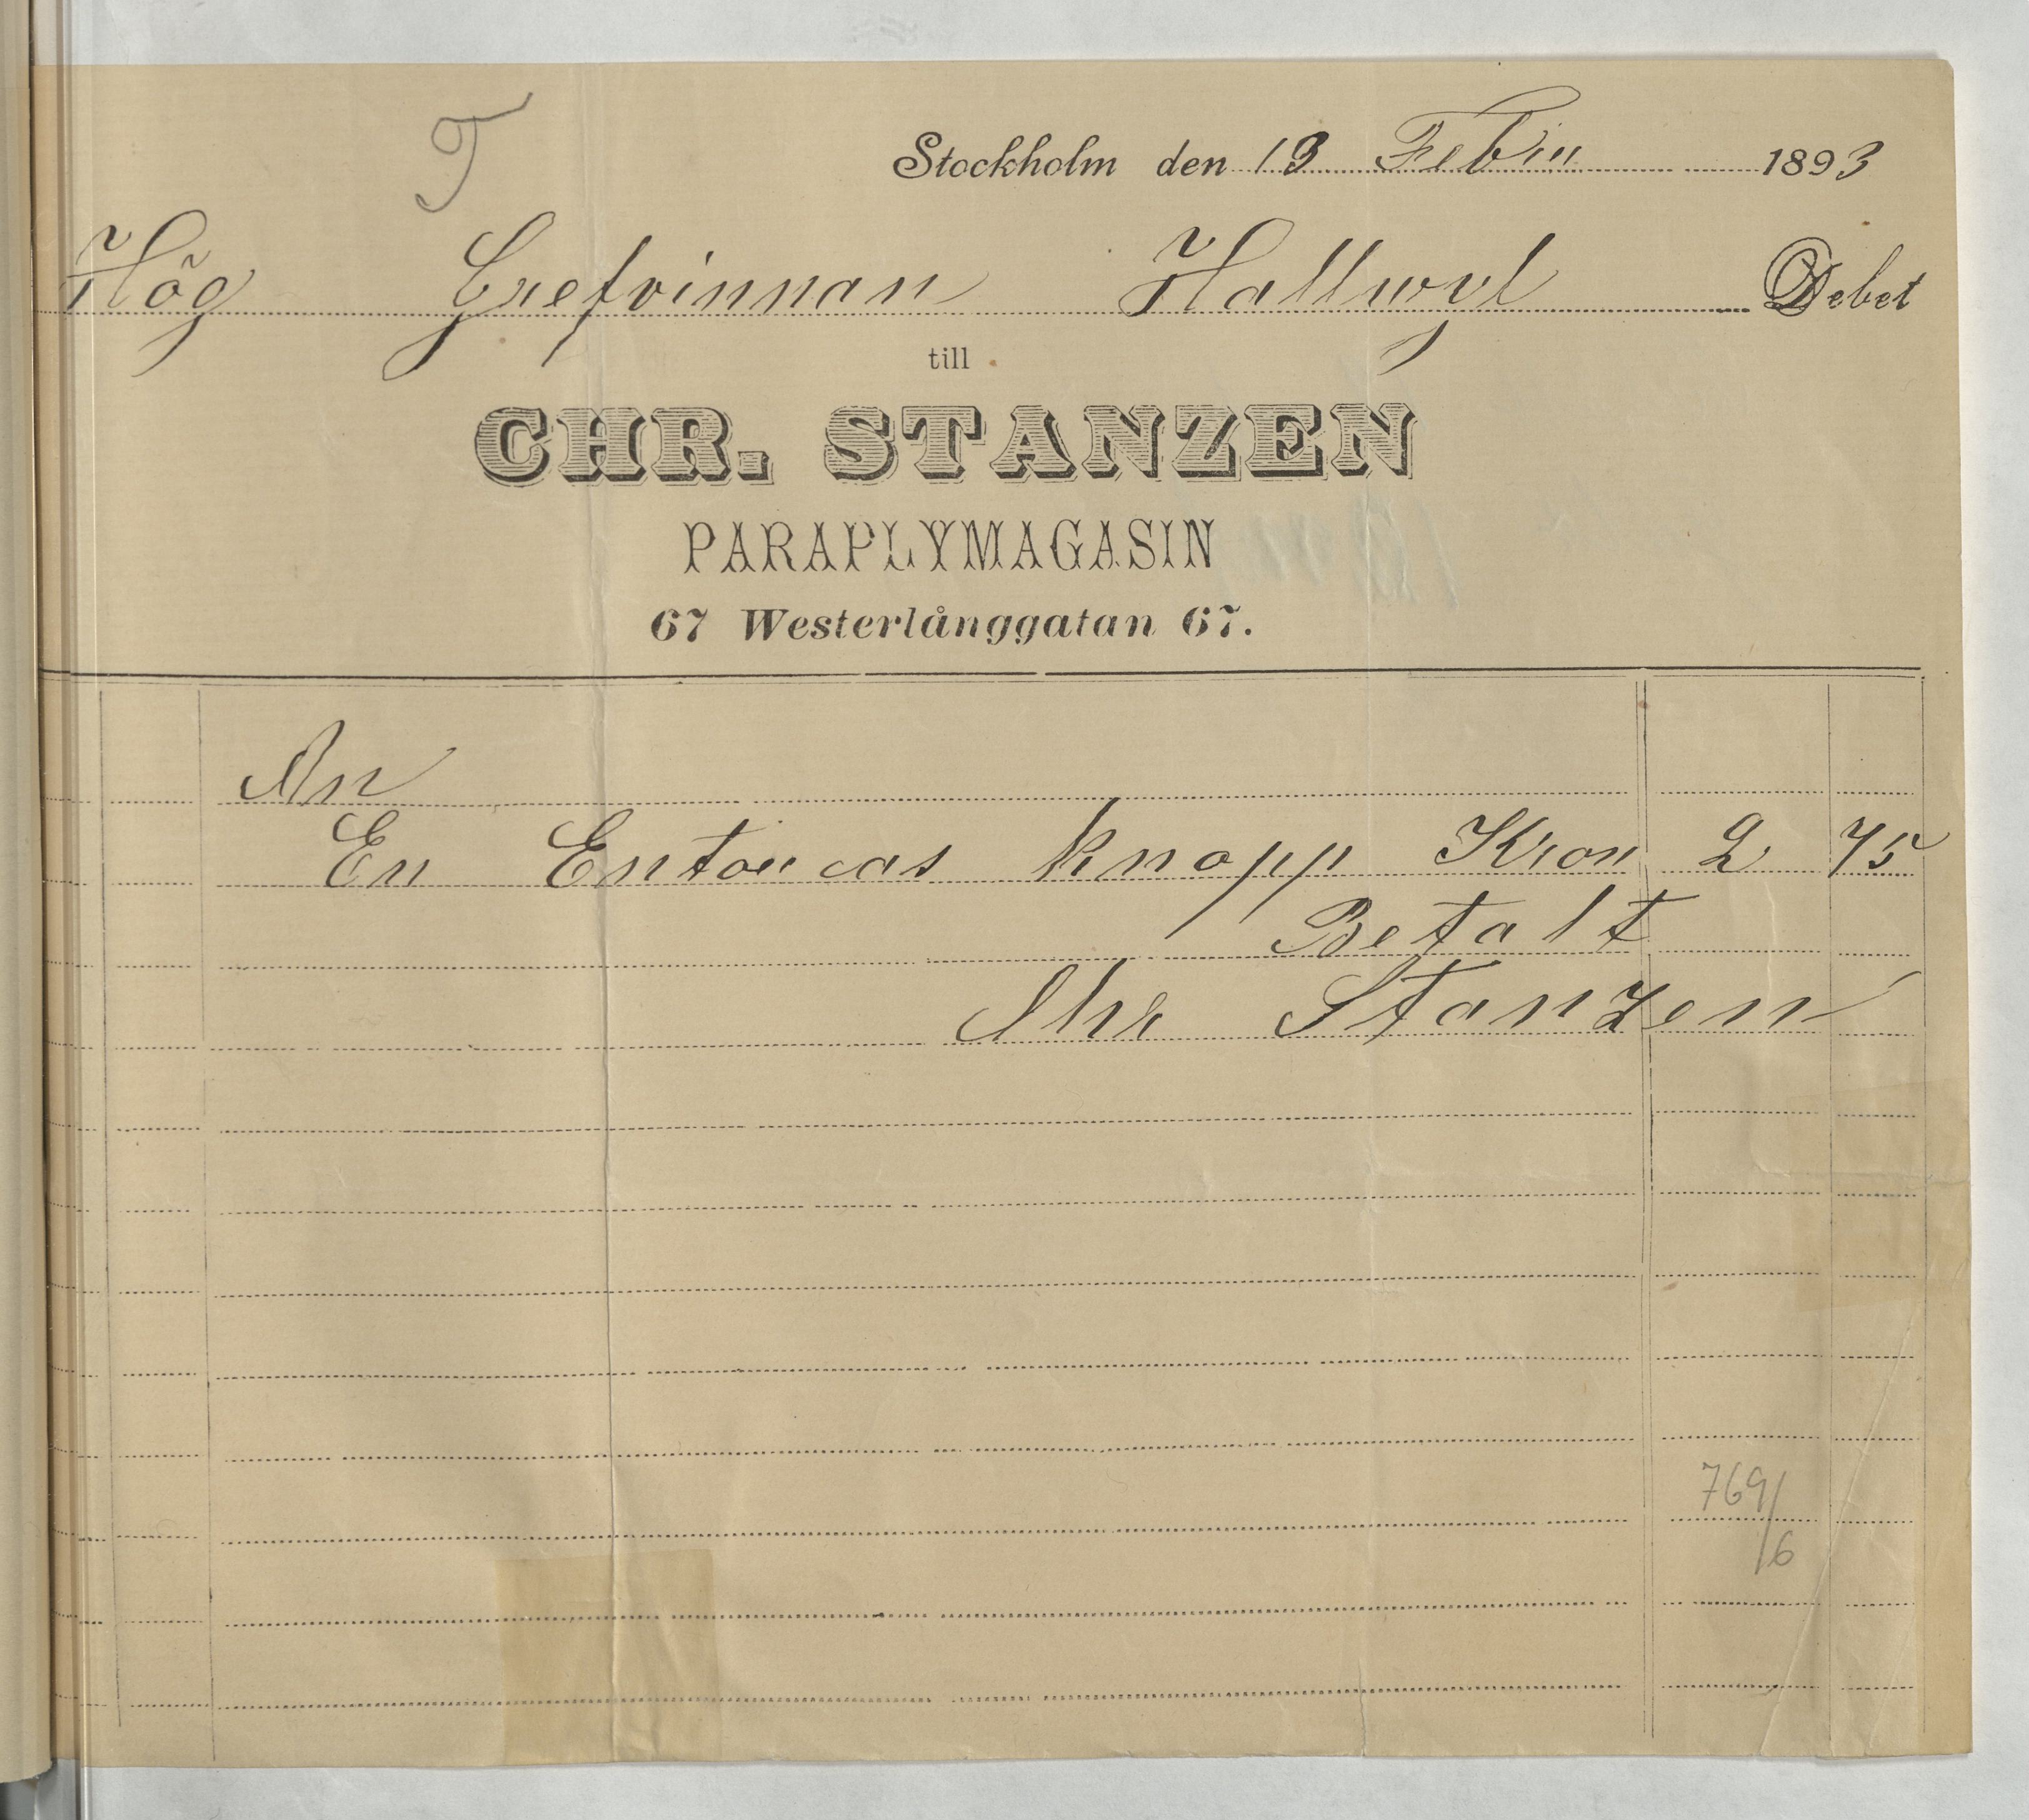 T
Stockholm den 13 Febru 1893
Hög Grefvinnan Hallwyl Debet
till
CHR. STANZEN
PARAPLYMAGASIN
67 Westerlånggatan 67.
An
En Entoucas knopp Kron 2 75
Betalt
Chr Stanzen
769/6